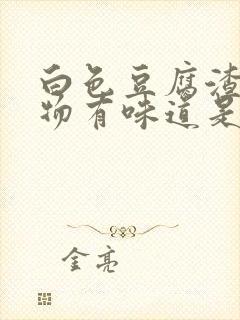 白色豆腐渣
物有味道是
金亮